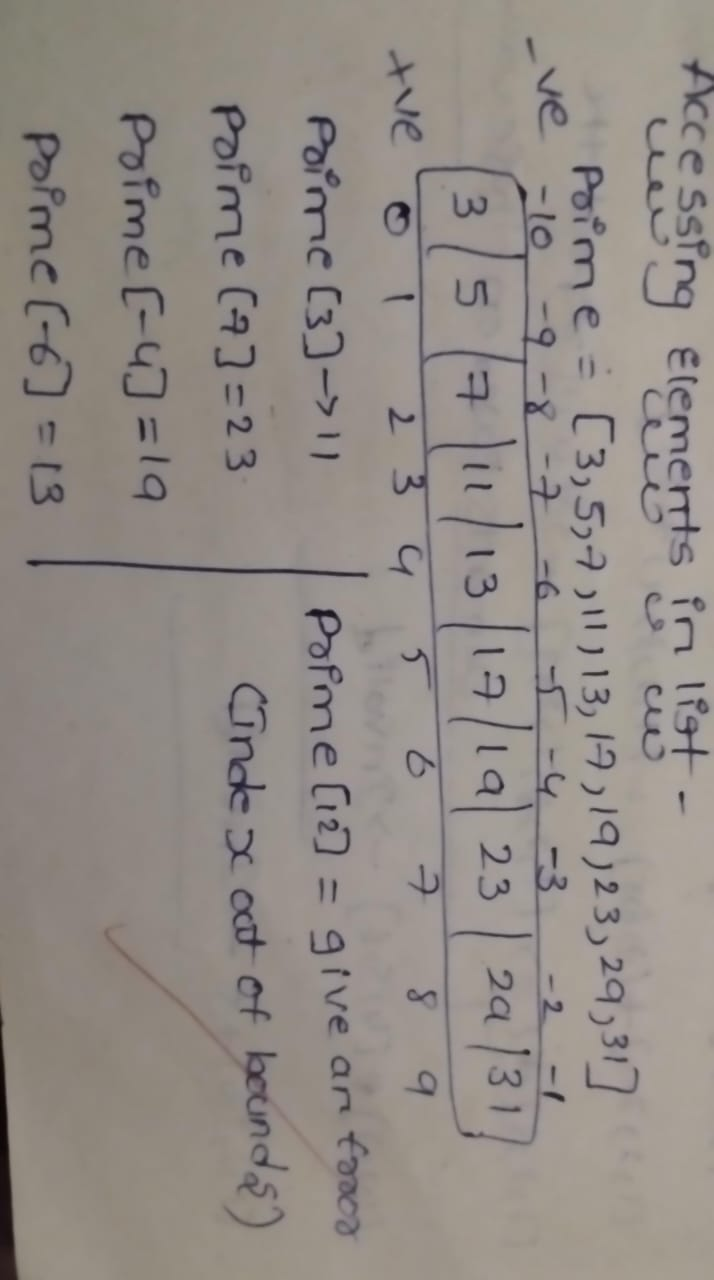 Accessing Elements in list -
Prime = [3,5,7,11,13,17,19,23,29,31]
-ve -10 -9 -8 -7 -6 -5 -4 -3 -2 -1
3 5 7 11 13 17 19 23 29 31
+ve 0 1 2 3 4 5 6 7 8 9
Prime [3] -> 11
Prime [7] = 23
Prime [-4] = 19
Prime [-6] = 13
Prime [12] = give an Error
(Index out of bounds)